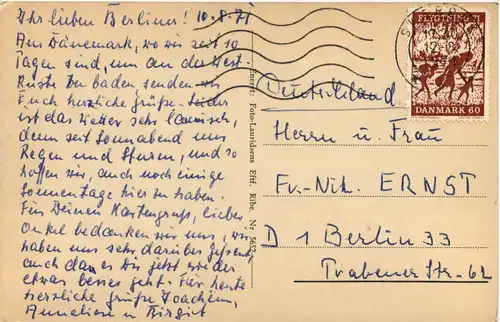 Ihr lieben Berliner! 10.8.71
Aus Dänemark, wo wir seit 10
Tagen sind, um an der West-
küste zu baden, senden wir
Euch herzliche Grüße. Leider
ist das Wetter sehr launisch,
denn seit Sonnabend nur
Regen und Sturm, und so
hoffen wir, auch noch einige
Sonnentage hier zu haben.
Für Deinen Kartengruß, lieber
Onkel bedanken wir uns, wir
haben uns sehr darüber gefreut,
auch daß es Dir jetzt wieder
etwas besser geht. Für heute
herzliche Grüße Joachim,
Anneliese u Birgit
Eneret: Foto-Lauridsens Eftf. Ribe. Nr.
FLYGTNING 71
DANMARK 60
Deutschland
Herrn u. Frau
Fr.-Wilh. ERNST
D 1 Berlin 33
Trabener Str. 62